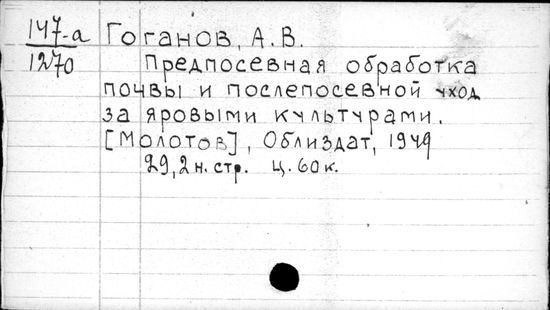 147-а
1270
Гоганов, А. В.
Предпосевная обработка
почвы и послепосевной уход
за яровыми культурами.
[Молотов], Облиздат, 1949
29, 2 н. стр. ц. 60 к.